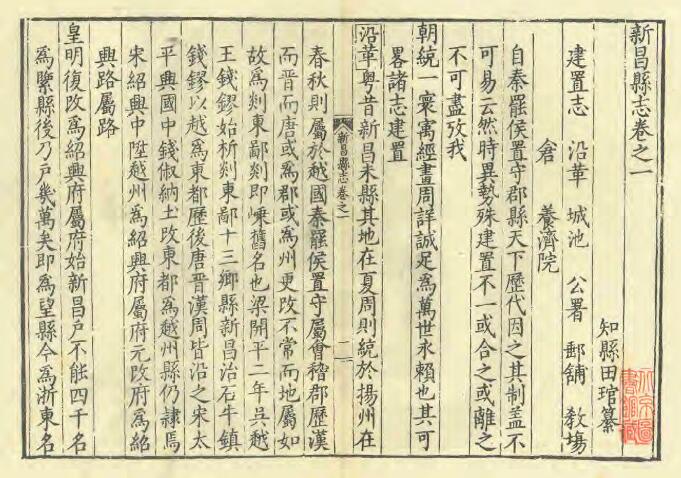 新昌縣志卷之一
知縣田琯纂
建置志　沿革　城池　公署　郵舖　敎場
倉　養濟院
自秦罷侯置守郡縣天下歷代因之其制盖不
可易云然時異勢殊建置不一或合之或離之
不可盡攷我
朝統一寰㝢經畫周詳誠足爲萬世永賴也其可
畧諸志建置
沿革粤昔新昌未縣其地在夏周則統於揚州在
新昌縣志卷之一
一
春秋則屬於越國秦罷侯置守屬會稽郡歷漢
而晋而唐或爲郡或爲州更改不常而地屬如
故爲剡東鄙剡即嵊舊名也梁開平二年吳越
王錢鏐始析剡東鄙十三鄉縣新昌治石牛鎮
錢鏐以越爲東都歷後唐晋漢周皆沿之宋太
平興國中錢俶納土攺東都爲越州縣仍隷焉
宋紹興中陞越州爲紹興府屬府元攺府爲紹
興路屬路
皇明復攺爲紹興府屬府始新昌戶不能四千名
爲緊縣後乃戶幾萬矣即爲望縣今爲浙東名